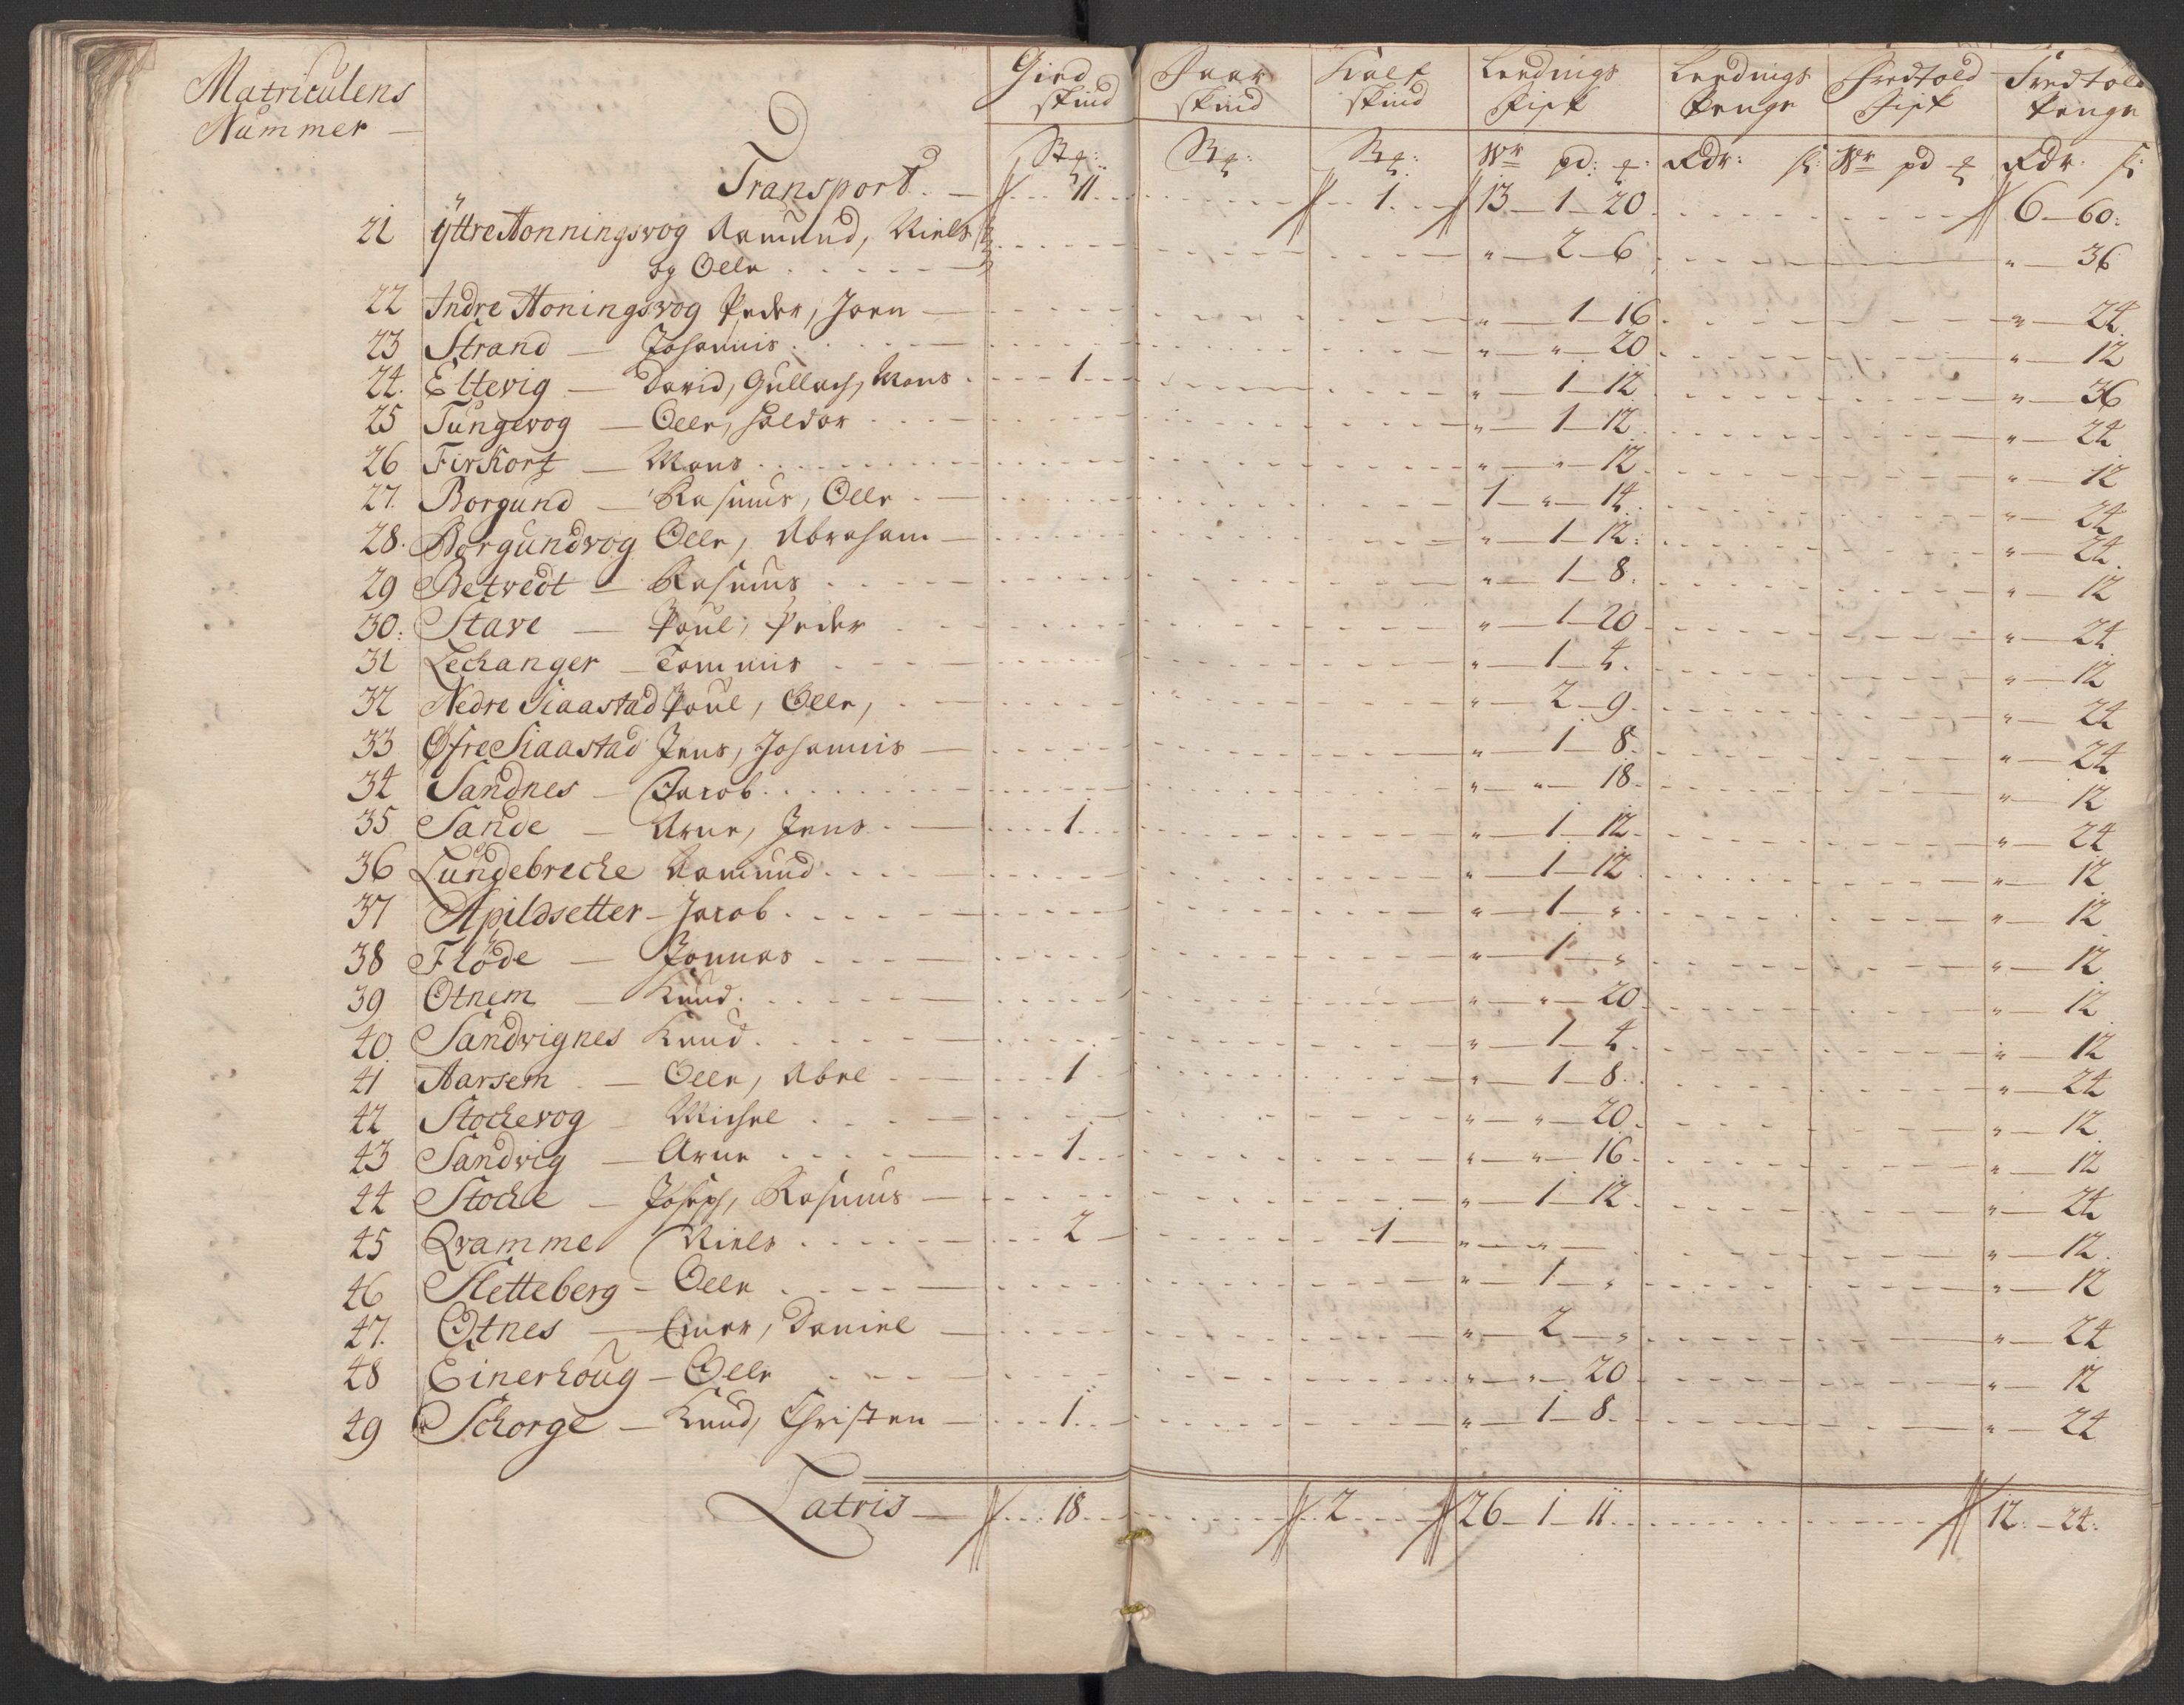 Matriculens Nummer — Gied skind Faar skind Kalf skind Leedings Fisk Leedings Penge Fredtold Fisk Fredtold Penge
Wr pd: Rdr: s: Wr pd Rdr. s:
Transport. — 11 1 13 — 1 — 20 6 — 60:
21 Yttre Honningsvog Aamund, Niels " — 2 — 6 " — 36
og Olle
22 Indre Honingsvog Peder, Joen — " — 1 — 16 " — 24
23 Strand — Johannis " — " — 20 " — 12
24. Eltevig — David, Gullach, Mons 1 " — 1 — 12 " — 36
25 Tungevog — Olle, Haldor " — 1 — 12 " — 24
26 Firkort — Mons " — " — 12 " — 12
27. Borgund — Rasmus, Olle 1 — " — 14 " — 24
28. Borgundvog Olle, Abraham — " — 1 — 12: " — 24
29 Betvedt — Rasmus " — 1 — 8. " — 12
30: Stave — Poul, Peder " — 1 — 20 " — 24
31 Lechanger — Tommis " — 1 — 4. " — 12
32 Nedre Siaastad Poul, Olle, " — 2 — 9. " — 24
33 Øfre Siaastad Jens, Johannis — " — 1 — 8. " — 24
34 Sandnes — Jacob " — " — 18. " — 12
35 Sande — Arne, Jens 1 " — 1 — 12 " — 24
36 Lundebreche Aamund " — 1 — 12 " — 12
37 Apildsetter — Jacob " — 1 — " " — 12
38 Flöde — Jonnas " — 1 — " " — 12
39 Otnem — Knud " — " — 20 " — 12
40 Sandvignes Knud " — 1 — 4. " — 12
41 Aarsem — Olle, Abel 1 " — 1 — 8. " — 24
42 Stochevog — Michel " — " — 20. " — 12
43 Sandvig — Arne 1 " — " — 16. " — 12
44 Stoche — Joseph, Rasmus — " — 1 — 12 " — 24
45 Qvamme Niels 2 1 " — " — " — 12.
46 Sletteberg — Olle " — 1 — " " — 12
47. Otnes — Einer, Daniel — " — 2 — " " — 24
48 Einerhoug — Olle " — " — 20 " — 12
49 Schorge — Knud, Christen — 1 " — 1 — 8. " — 24
Latris — 18 2 26 — 1 — 11 12. — 24.